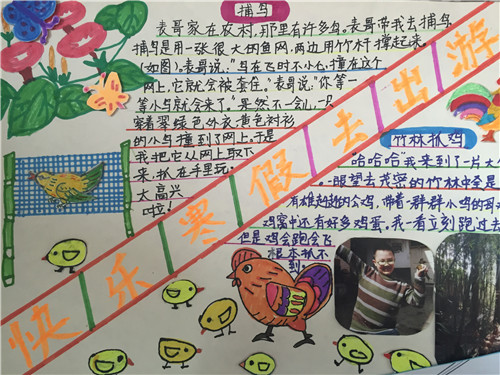 捕鸟
表哥家在农村,那里有许多鸟。表哥带我去捕鸟,
捕鸟是用一张很大的鱼网,两边用竹村撑起来。
(如图)。表哥说:"鸟在飞时不小心,撞在这个
网上,它就会被套住。"表哥说:"你等一
等小鸟就会来了。"果然不一会儿,一只
穿着翠绿色外衣,黄色衬衫
的小鸟撞到了网上。于是
我把它从网上取下
来,抓在手里玩。
太高兴
啦!
快乐寒假去出游
竹林抓鸡
"哈哈哈"我来到了一片大
。眼望去茂密的竹林中
有雄赳赳的公鸡,带着一群群小鸡的母
鸡窝中还有好多鸡蛋。我一看立刻跑过去
但是鸡会跑会飞
根本抓不
到